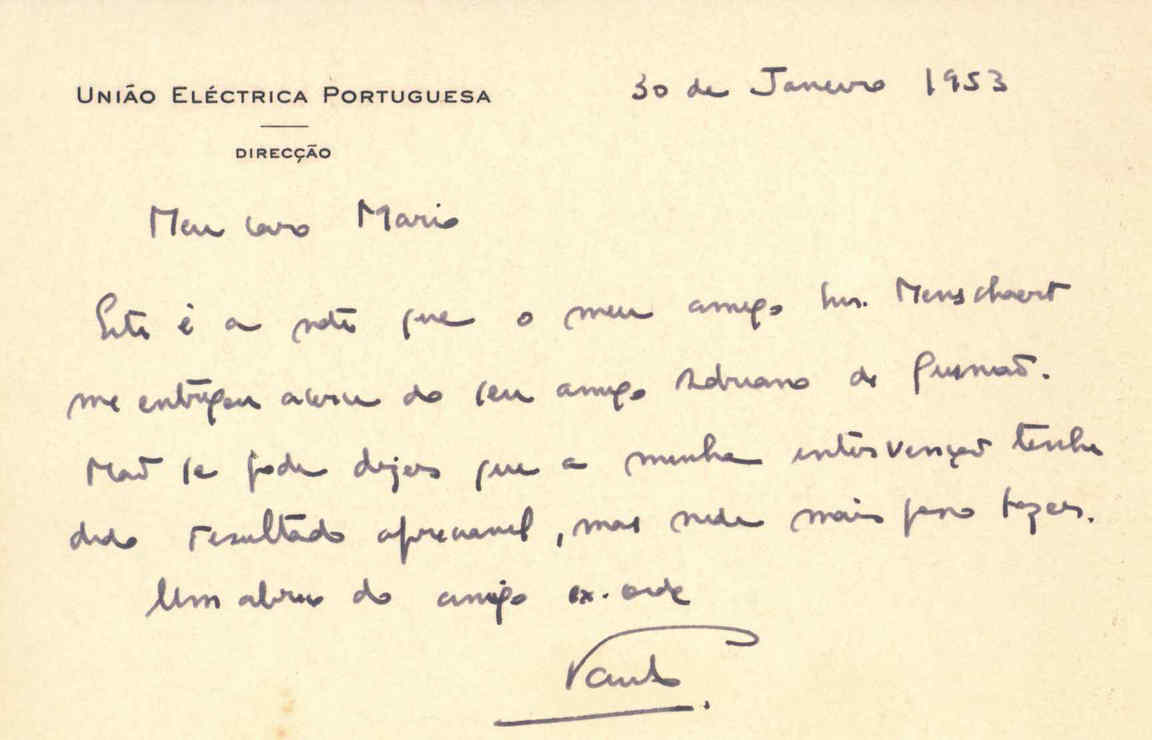 UNIÃO ELÉCTRICA PORTUGUESA
30 de Janeiro 1953
DIRECÇÃO
Meu caro Mario
Esta é a nota que o meu amigo Menschaert
me entregou acerca do seu amigo Adriano de Gusmão.
Não se pode dizer que a minha intervenção tenha
dado resultado apreciavel, mas nada mais posso fazer.
Um abraço do amigo
Paulo